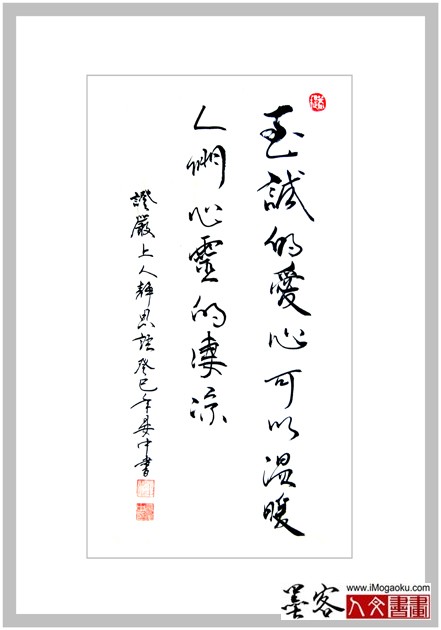 至誠的愛心可以温暖
人們心靈的凄凉
證嚴上人靜思語癸巳年晏中書
墨客
www.iMogaoku.com
人文書畫